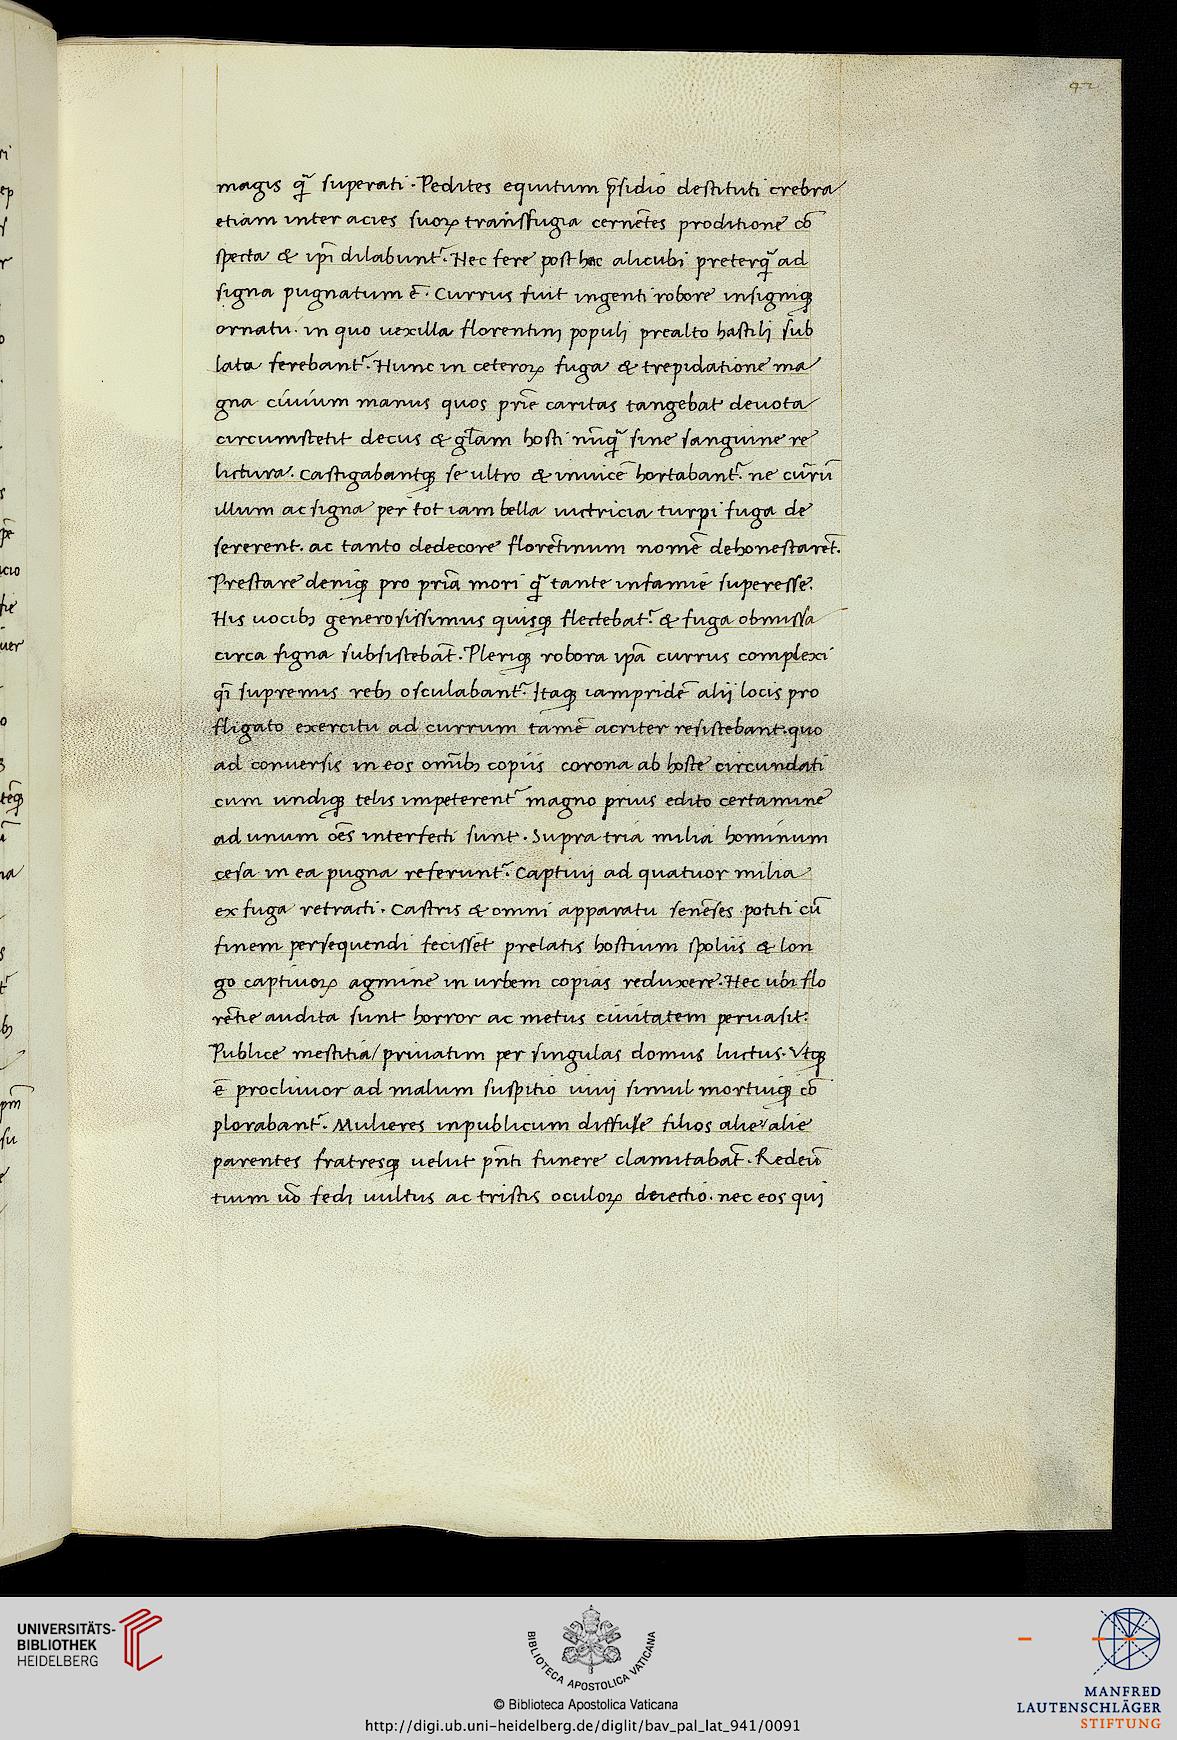 42
magis qᷓ superati · Pedites equitum p̄sidio destituti crebra
etiam inter acies suoꝝ transfugia cernētes proditione cō
specta & ip̄i dilabunt᷑ · Nec fere post hac alicubi preterqᷓ ad
signa pugnatum ē · Currus fuit ingenti robore insigniqꝫ
ornatu · in quo uexilla florentinj populj prealto hastilj sub
lata ferebant᷑ · Hunc in ceteroꝝ fuga & trepidatione ma
gna ciuium manus quos pr̄ie caritas tangebat deuota
circumstetit decus & gl̄am hosti nūqᷓ sine sanguine re
lictura · Castigabantqꝫ se ultro & inuicē hortabant᷑ · ne currū
illum ac signa per tot iam bella uictricia turpi fuga de
sererent · ac tanto dedecore florētinum nomē dehonestarēt ·
Prestare deniqꝫ pro pr̄ia mori qᷓ tante infamie superesse ·
His uocibꝫ generosissimus quisqꝫ flectebat᷑ · & fuga obmissa
circa signa subsistebāt · Pleriqꝫ robora ip̄a currus complexi
qᷓi supremis rebꝫ osculabant᷑ · Itaqꝫ iampridē alijs locis pro
fligato exercitu ad currum tamē acriter resistebant · quo
ad conuersis in eos omībꝫ copiis corona ab hoste circundati
cum undiqꝫ telis impeterent᷑ magno prius edito certamine
ad unum oēs interfecti sunt · Supra tria milia hominum
cesa in ea pugna referunt᷑ · Captiuj ad quatuor milia
ex fuga retracti · Castris & omni apparatu senēses potiti cū
finem persequendi fecisset prelatis hostium spoliis & lon
go captiuoꝝ agmine in urbem copias reduxere · Hec ubi flo
rētie audita sunt horror ac metus ciuitatem peruasit ·
Publice mestitia / priuatim per singulas domus luctus · Vtqꝫ
ē procliuior ad malum suspitio uiuj simul mortuiqꝫ cō
plorabant᷑ · Mulieres in publicum diffuse filios alie / alie
parentes fratresqꝫ uelut pn̄ti funere clamitabāt · Redeū
tium ūo fedj uultus ac tristis oculoꝝ deiectio · nec eos quj
UNIVERSITÄTS-
BIBLIOTHEK
HEIDELBERG
BIBLIOTECA APOSTOLICA VATICANA
© Biblioteca Apostolica Vaticana
http://digi.ub.uni-heidelberg.de/diglit/bav_pal_lat_941/0091
MANFRED
LAUTENSCHLÄGER
STIFTUNG